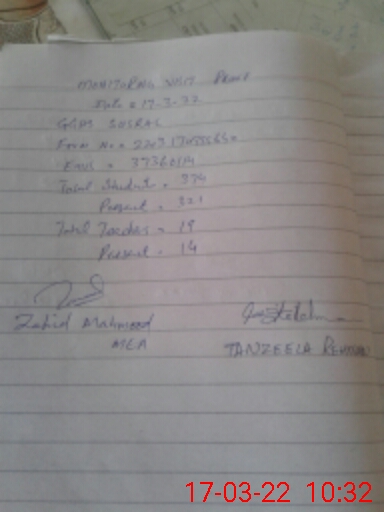 MONITORING VISIT PROOF
Date = 17-3-22
GGPS SOSRAL
Form No =
Emis = 37360114
Total Students = 374
Present = 321
Total Teachers = 19
Present = 14
Zahid Mahmood
MEA
TANZEELA REHMAN
17-03-22 10:32